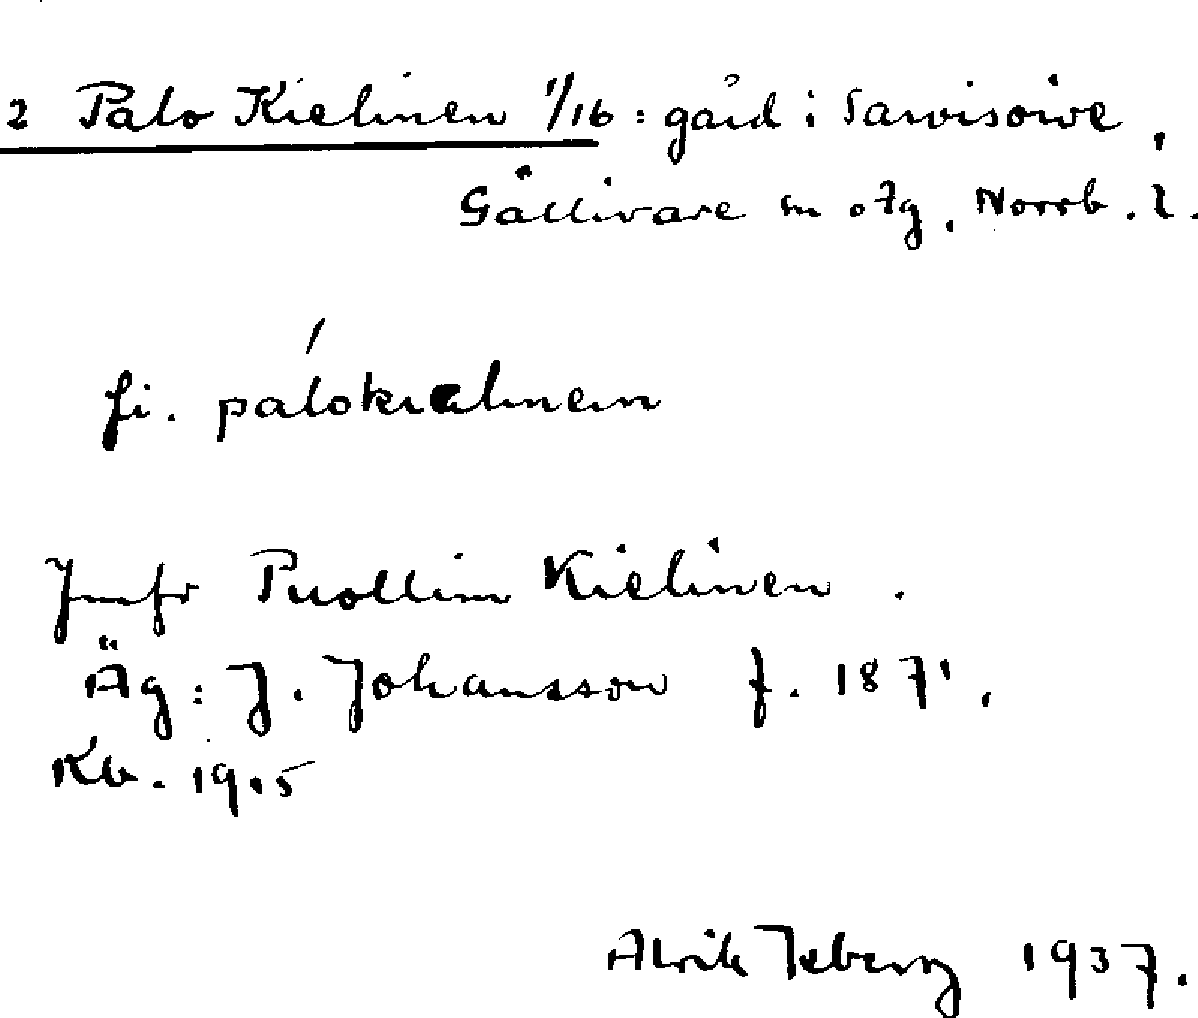 2 Palo Kielinen 1/16 : gård i Sarvisoive,
Gällivare sn o tg, Norrb. l.
fi. palokielinein
Jmfr Puollim Kielinen.
Äg: J. Johansson f. 1871.
Kb. 1915
Alvik Iseberg 1937.